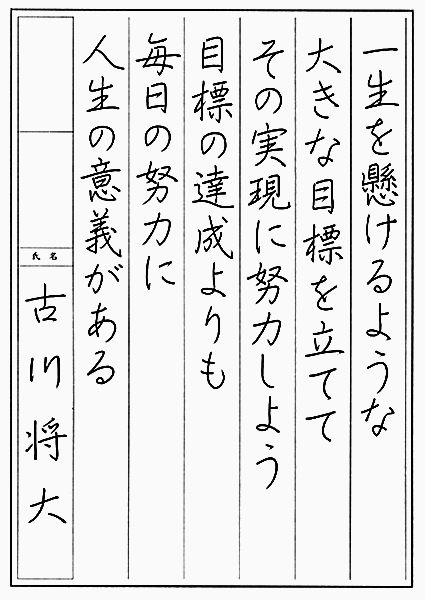 一生を懸けるような
大きな目標を立てて
その実現に努力しよう
目標の達成よりも
毎日の努力に
人生の意義がある
氏名
古川将大